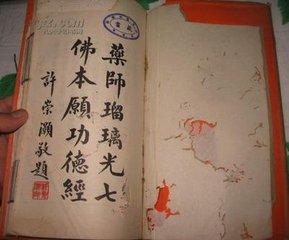 藥師瑠璃光七
佛本願功德經
許崇灝敬題